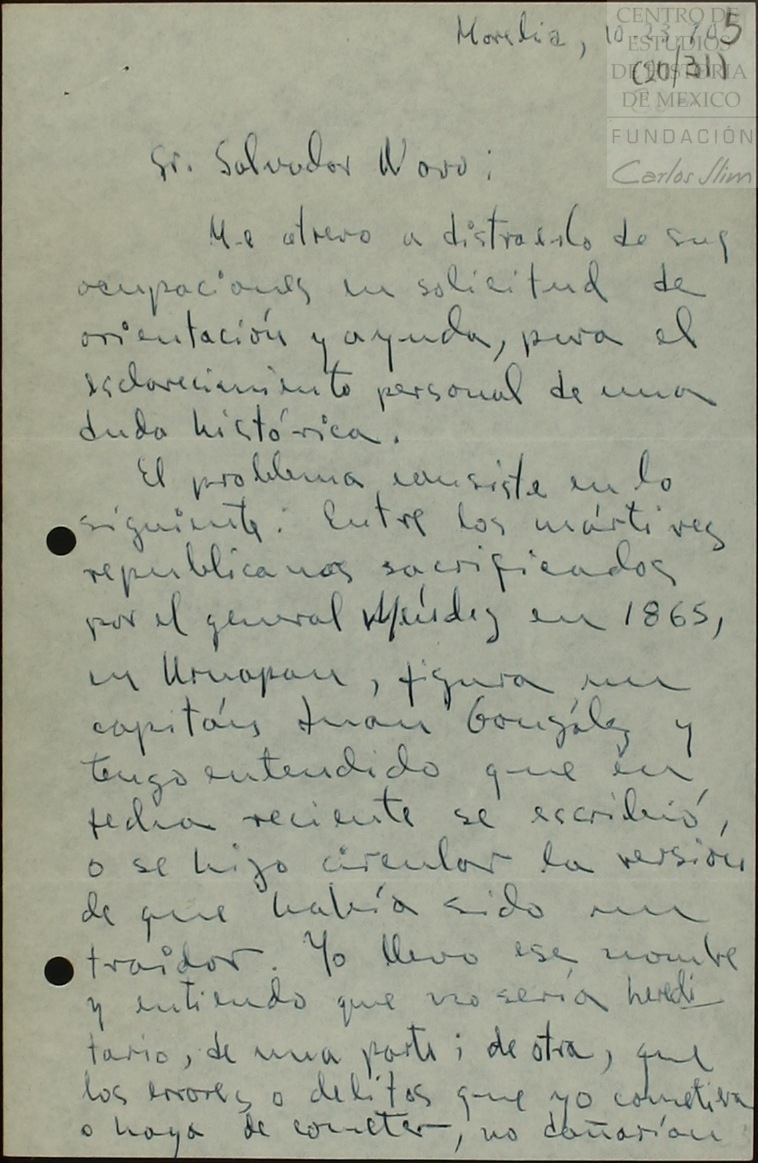 Morelia, 10.23.70
5
(20/31)
CENTRO DE
ESTUDIOS
DE HISTORIA
DE MEXICO
FUNDACIÓN
Carlos Slim
Sr. Salvador Novo:
Me atrevo a distraerlo de sus
ocupaciones en solicitud de
orientación y ayuda, para el
esclarecimiento personal de una
duda histórica.
El problema consiste en lo
siguiente: Entre los mártires
republicanos sacrificados
por el general Méndez en 1865,
en Uruapan, figura un
capitán Juan González y
tengo entendido que en
fecha reciente se escribió,
o se hizo circular la versión
de que había sido un
traidor. Yo llevo ese nombre
y entiendo que no sería heredi
tario, de una parte; de otra, que
los errores o delitos que yo cometiera
o haya de cometer, no dañarían